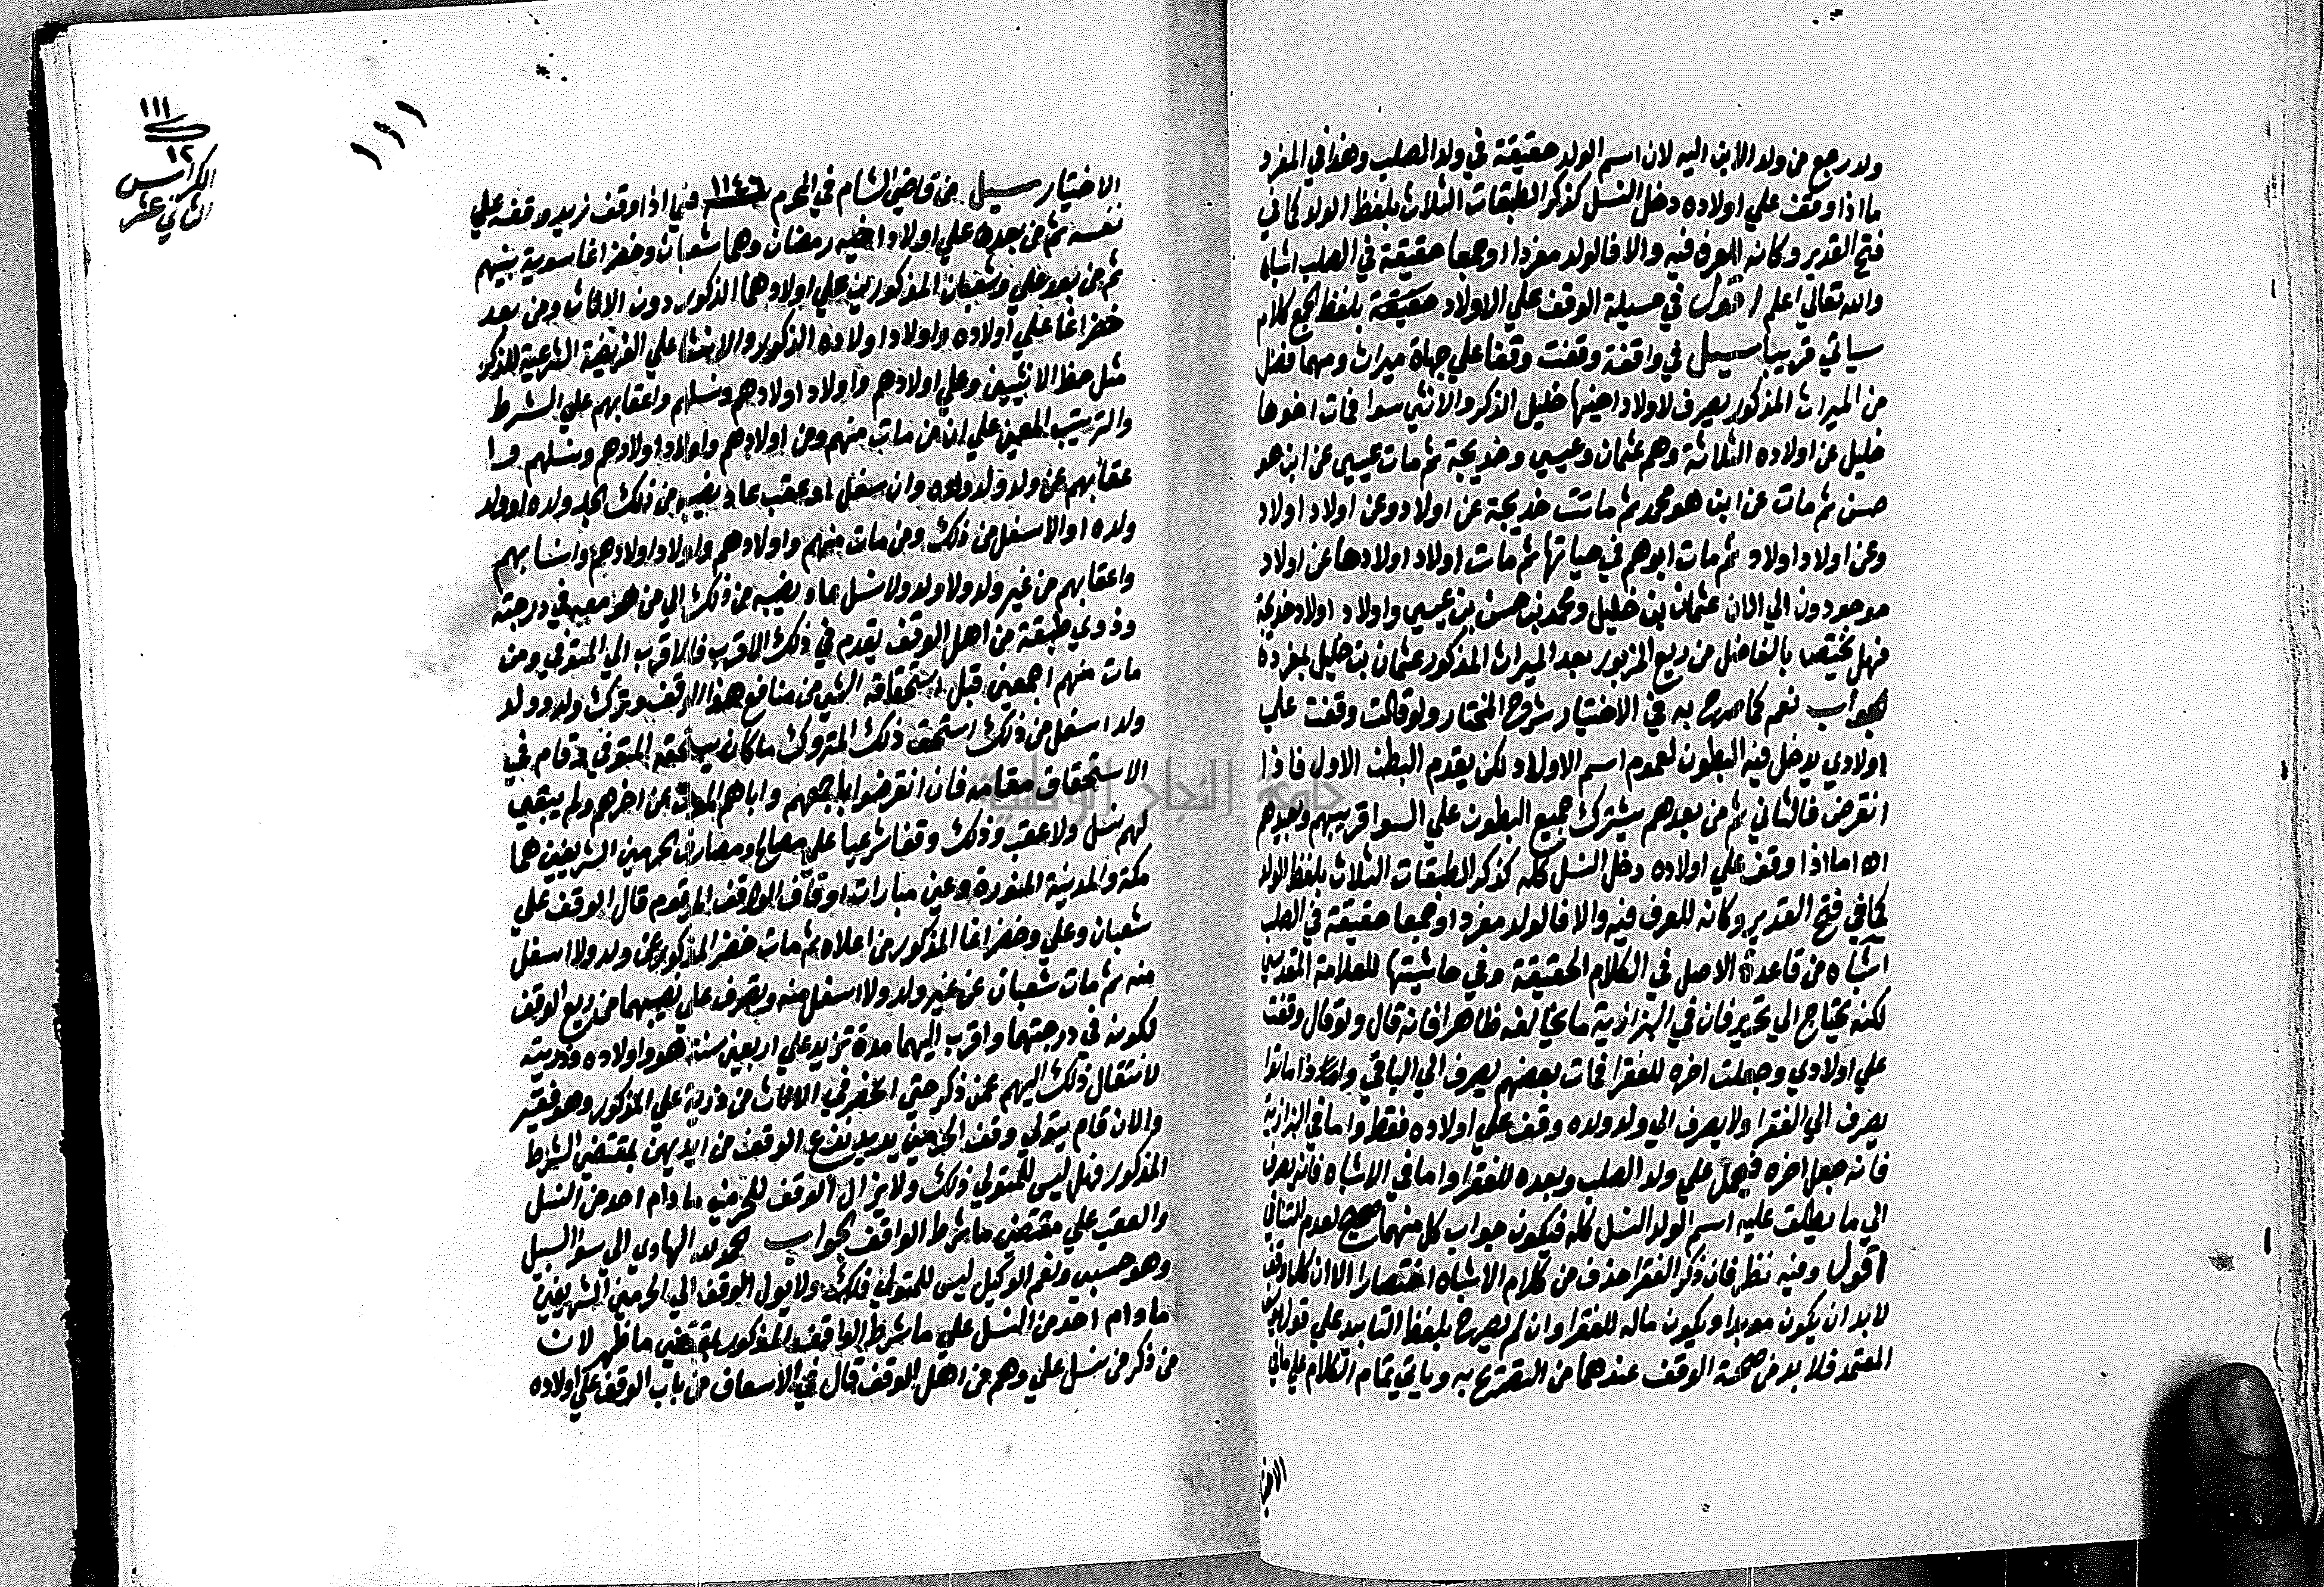 ولد رجع من ولد الابن اليه لان اسم الولد حقيقة في ولد الصلب وهذا في المفرد
ما اذا وقف علي اولاده دخل النسل كذكر الطبقات الثلاث بلفظ الولد كما في
فتح القدير وكانه للعرف فيه والا فالولد مفردا او جمعا حقيقة في الصلب اشباه
والله تعالي اعلم اقول في مسيلة الوقف علي الاولاد حقيقة بلفظ الجمع كلام
سياتي قريبا سيل في واقفة وقفت وقفا علي جهاة ميراث ومهما فضل
من الميراث المذكور يصرف لاولاد اخيها خليل الذكر والانثي سوا فمات اخوها
خليل عن اولاده الثلاثة وهم عثمان وعيسي وخديجة ثم مات عيسي عن ابن هو
حسن ثم مات عن ابن هو محمد ثم ماتت خديجة عن اولاد وعن اولاد اولاد
وعن اولاد اولاد ثم مات ابوهم في حياتها ثم مات اولاد اولادها عن اولاد
موجودون الي الان عثمان بن خليل ومحمد بن حسن بن عيسي واولاد اولاد خديجة
فهل يختص بالفاضل من ريع المزبور بعد الميراث المذكور عثمان بن خليل بمفرده
الجواب نعم كما صرح به في الاختيار شرح المختار ولو قالت وقفت علي
اولادي يدخل فيه البطون لعموم اسم الاولاد لكن يقدم البطن الاول فاذا
انقرض فالثاني ثم من بعدهم يشترك جميع البطون علي السوا قريبهم وبعيدهم
اه اما اذا وقف علي اولاده دخل النسل كله كذكر الطبقات الثلاث بلفظ الولد
كما في فتح القدير وكانه للعرف فيه والا فالولد مفردا وجمعا حقيقة في الصلب
اشباه من قاعدة الاصل في الكلام الحقيقة وفي حاشيتها للعلامة المقدسي
لكنه يحتاج الي تحرير فان في البزازية ما يخالفه ظاهرا فانه قال ولو قال وقفت
علي اولادي وجعلت اخره للفقرا فمات بعضهم يصرف الي الباقي واذا ماتوا
يصرف الي الفقرا ولا يصرف الي ولد ولده وقف علي اولاده فقط واما في البزازية
فانه جعل اخره فيحمل علي ولد الصلب وبعده للفقرا واما في الاشباه فانه يصرف
الي ما يطلق عليه اسم الولد النسل كله فيكون جواب كل منهما صحيح لعدم التنافي
اقول وفيه نظر فان ذكر الفقرا حذف من كلام الاشباه اختصارا الا ان كل وقف
لا بد ان يكون موبدا ويكون ماله للفقرا وان لم يصرح بلفظ التابيد علي قول
المعتمد فلا بد من صحة الوقف عندهما من التصريح به وياتي تمام الكلام علي ما في
الاختيار
١١١
١١١
١٢
الكراس
الثاني عشر
الاختيار سيل من قاضي الشام في المحرم ١١٤٦ فيما اذا وقف زيد وقفه علي
نفسه ثم من بعده علي اولاد اخيه رمضان وهما شعبان وخضر اغا سوية بينهم
ثم من بعد علي وشعبان المذكورين علي اولادهما الذكور دون الاناث ومن بعد
خضر اغا علي اولاده واولاد اولاده الذكور والاناث علي الفريضة الشرعية للذكر
مثل حظ الانثيين وعلي اولادهم واولاد اولادهم ونسلهم واعقابهم علي الشرط
والترتيب المعين علي ان من مات منهم ومن اولادهم واولاد اولادهم ونسلهم وا
عقابهم عن ولد وولد ولده وان سفل او عقب عاد نصيبه من ذلك الي ولده او ولد
ولده او الاسفل من ذلك ومن مات منهم واولادهم واولاد اولادهم وانسابهم
واعقابهم من غير ولد ولا ولد ولا نسل عاد نصيبه من ذلك الي من هو معه في درجته
وذوي طبقة من اهل الوقف يقدم في ذلك الاقرب فالاقرب الي المتوفي ومن
مات منهم اجمعين قبل استحقاقه الشي من منافع هذا الوقف وترك ولد او ولد
ولد اسفل من ذلك استحق ذلك المتروك ما كان يستحقه المتوفي وقام في
الاستحقاق مقامه فان انقرضوا باجمعهم واباهم الموت عن اخرهم ولم يبقي
لهم نسل ولا عقب وذلك وقفا شرعيا علي مصالح ومصارف الحرمين الشريفين هما
مكة والمدينة المنورة وعين مبارات اوقاف الواقف المرقوم قال الوقف علي
شعبان وعلي وخضر اغا المذكور من اعلاه ثم مات خضر المذكور عن ولد ولا اسفل
منه ثم مات شعبان عن غير ولد ولا اسفل منه وتصرف علي نصيبهما من ريع الوقف
لكونه في درجتهما واقرب اليهما مدة تزيد علي اربعين سنة هو واولاده وذريته
لانتقال ذلك اليهم عمن ذكر حتي انحصر في الاناث من ذرية علي المذكور وهو فقير
والان قام متولي وقف الحرمين يريد نزع الوقف من ايديهن بمقتضي الشرط
المذكور فهل ليس للمتولي ذلك ولا يزال الوقف للحرمين ما دام احد من النسل
والعقب علي مقتضي ما شرط الواقف الجواب الحمد لله الهادي الي سوا السبيل
وهو حسبي ونعم الوكيل ليس للمتولي ذلك ولا يول الوقف الي الحرمين الشريفين
ما دام احد من النسل علي ما شرط الواقف المذكور بمقتضي ما ظهر لان
من ذكر من نسل علي وهم من اهل الوقف قال في الاسعاف من باب الوقف علي اولاده
جامعة النجاح الوطنية